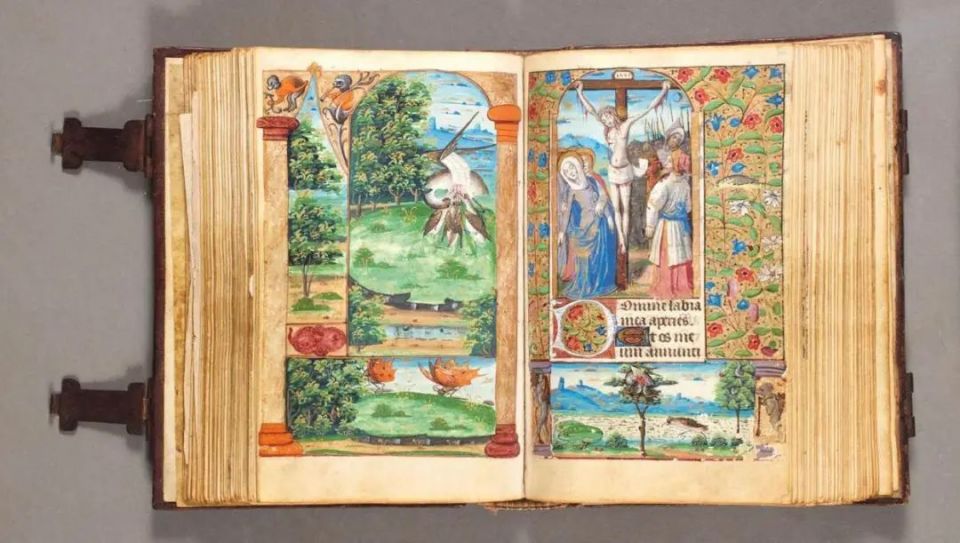 INRI
Omine labia
mea aperies.
Et os me
um annunci